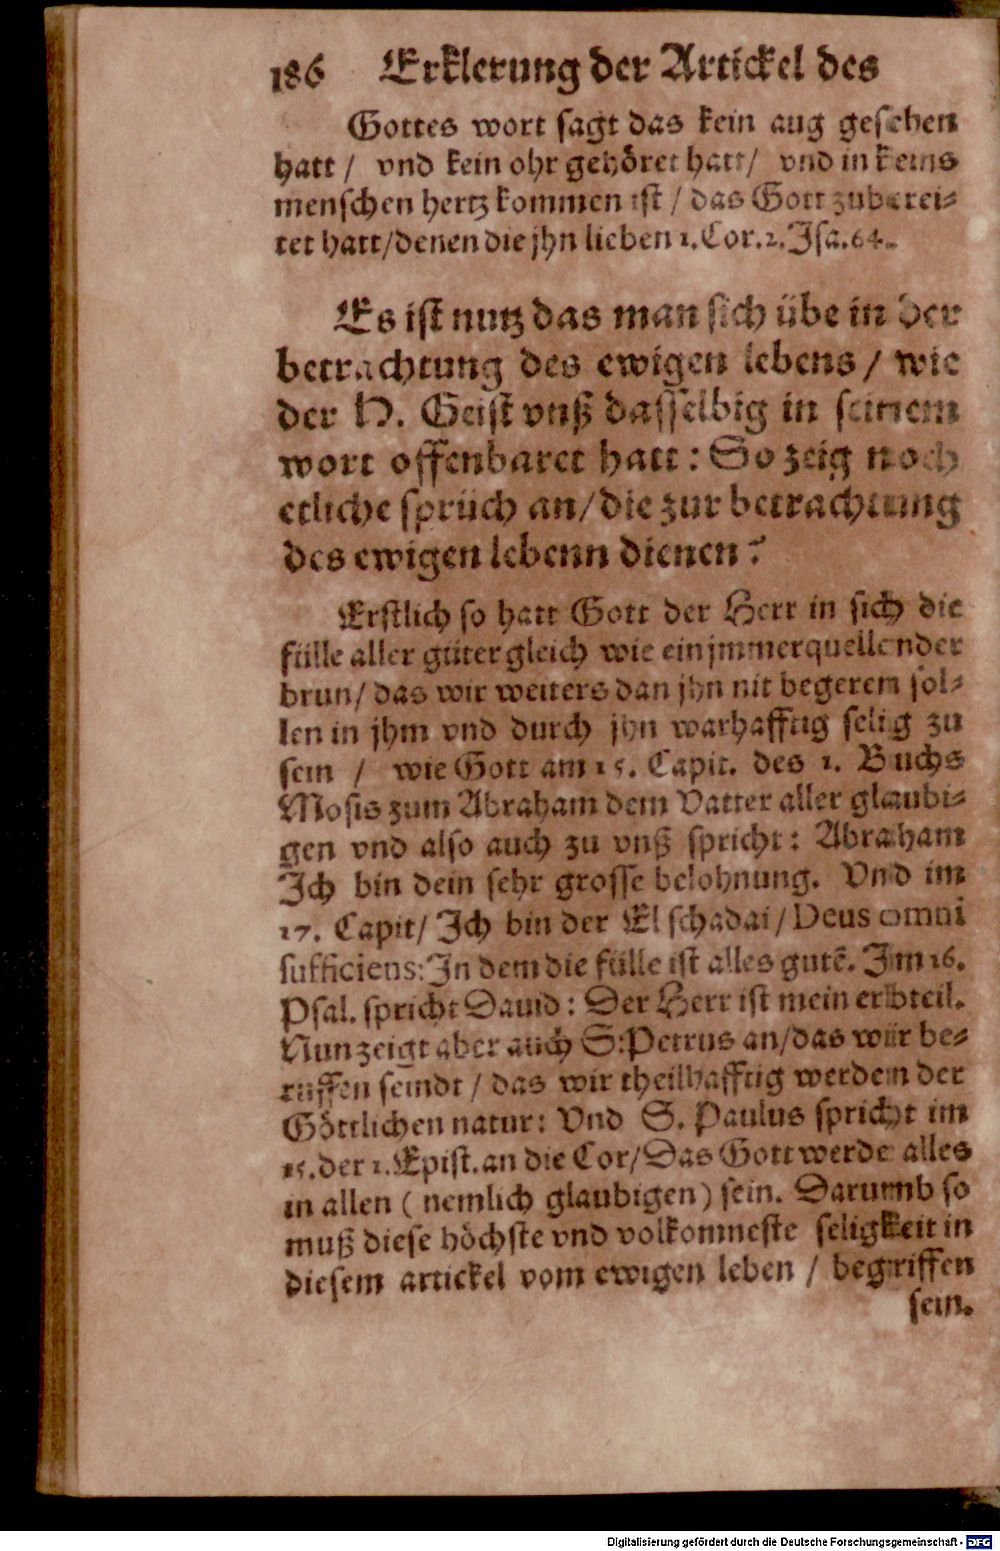 186 Erklerung der Artickel des
Gottes wort sagt das kein aug gesehen
hatt / vnd kein ohr gehöret hatt/ vnd in keins
menschen hertz kommen ist / das Gott zuberei⸗
tet hatt/denen die jhn lieben 1.Cor.2.Isa.64.
Es ist nutz das man sich übe in der
betrachtung des ewigen lebens / wie
der H. Geist vnß dasselbig in seinem
wort offenbaret hatt: So zeig noch
etliche sprüch an/die zur betrachtung
des ewigen lebenn dienen?
Erstlich so hatt Gott der Herr in sich die
fülle aller güter gleich wie ein jmmerquellender
brun/ das wir weiters dan jhn nit begerem sol⸗
len in jhm vnd durch jhn warhafftig selig zu
sein / wie Gott am 15. Capit. des 1. Buchs
Mosis zum Abraham dem Vatter aller glaubi⸗
gen vnd also auch zu vnß spricht: Abraham
Ich bin dein sehr grosse belohnung. Vnd im
17. Capit/ Ich bin der El schadai/Deus omni
sufficiens:In dem die fülle ist alles gutẽ. Im 16.
Psal. spricht Dauid: Der Herr ist mein erbteil.
Nun zeigt aber auch S:Petrus an/das wir be⸗
rüffen seindt / das wir theilhafftig werden der
Göttlichen natur: Vnd S. Paulus spricht im
15.der 1.Epist.an die Cor/Das Gott werde alles
in allen ( nemlich glaubigen) sein. Darumb so
muß diese höchste vnd volkomneste seligkeit in
diesem artickel vom ewigen leben / begriffen
sein.
Digitalisierung gefördert durch die Deutsche Forschungsgemeinschaft - DFG